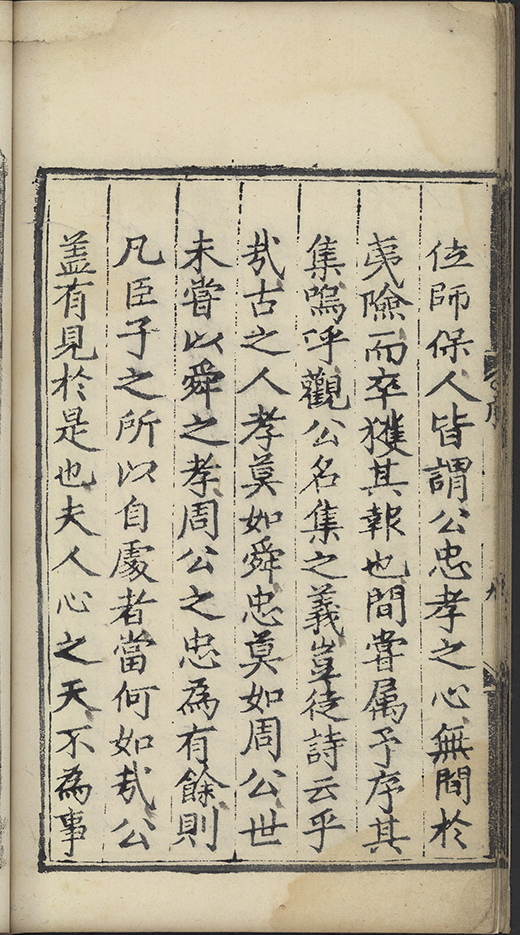 位師保人皆謂公忠孝之心無間於
夷險而卒獲其報也間嘗属予序其
集嗚呼觀公名集之義豈徒詩云乎
㢤古之人孝莫如舜忠莫如周公世
未嘗以舜之孝周公之忠為有餘則
凡臣子之所以自處者當何如㢤公
盖有見於是也夫人心之天不為事